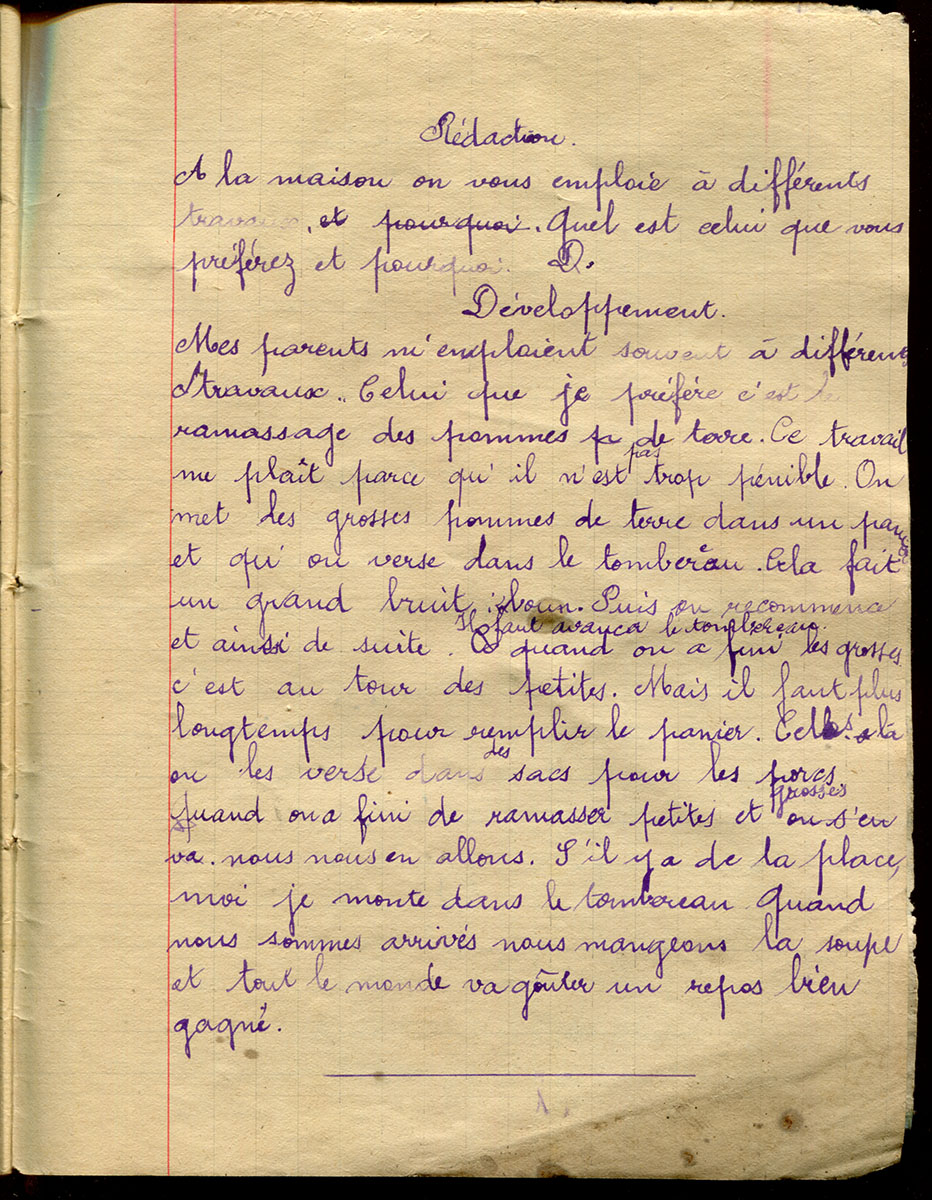 Rédaction.
A la maison on vous emploie à différents
travaux, et pourquoi. Quel est celui que vous
préférez et pourquoi. D.
Développement.
Mes parents m'emploient souvent à différents
travaux.. Celui que je préfère c'est le
ramassage des pommes p de terre. Ce travail
pas
me plaît parce qu'il n'est trop pénible. On
met les grosses pommes de terre dans un panier
et qu'on verse dans le tombereau. Cela fait
un grand bruit : boun. Puis on recommence
Il faut avancer le tombereau.
et ainsi de suite. quand on a fini les grosses
c'est au tour des petites. Mais il faut plus
longtemps pour remplir le panier. Celles là
des
on les verse dans sacs pour les porcs
grosses
quand on a fini de ramasser petites et on s'en
va. nous nous en allons. S'il y a de la place,
moi je monte dans le tombereau Quand
nous sommes arrivés nous mangeons la soupe
et tout le monde va goûter un repos bien
gagné.